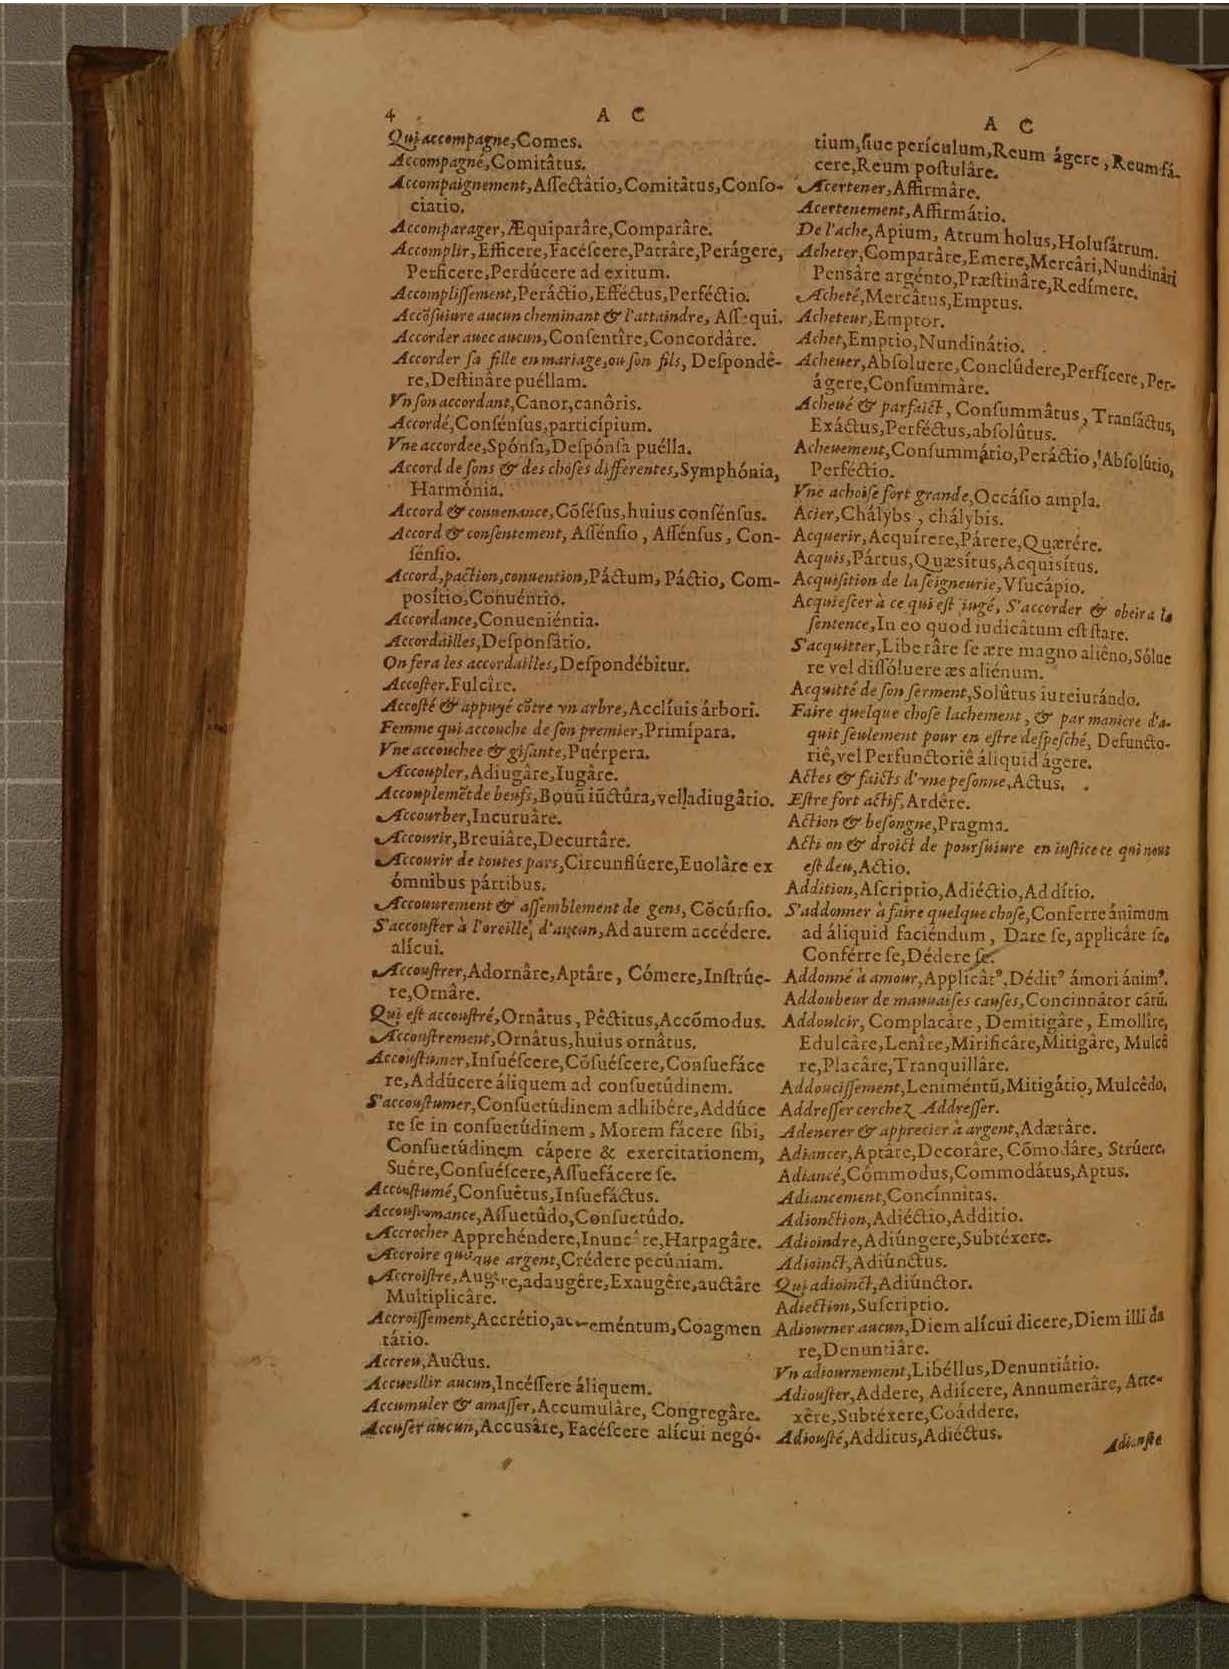 4 A C
Qui accompagne, Comes.
Accompagné, Comitâtus.
Accompaignement, Aſſectâtio, Comitâtus, Conſo-
ciatio.
Accomparager, Æquiparâre, Comparâre.
Accomplir, Efficere, Facéſcere, Patrâre, Perágere,
Perficere, Perdúcere ad exitum.
Accompliſſement, Peráctio, Efféctus, Perféctio.
Accõſuiure aucun cheminant & l'attaindre, Aſſequi.
Accorder auec aucun, Conſentîre, Concordâre.
Accorder ſa fille en mariage, ou ſon fils, Deſpondê-
re, Deſtinâre puéllam.
Vn ſon accordant, Canor, canôris.
Accordé, Conſénſus, particípium.
Vne accordee, Spónſa, Deſpónſa puélla.
Accord de ſons & des choſes differentes, Symphónia,
Harmónia.
Accord & conuenance, Cõſéſus, huius conſénſus.
Accord & conſentement, Aſſénſio, Aſſénſus, Con-
ſénſio.
Accord, paction, conuention, Páctum, Páctio, Com-
poſítio, Conuéntio.
Accordance, Conueniéntia.
Accordailles, Deſponſâtio.
On fera les accordailles, Deſpondébitur.
Accoſter. Fulcîre.
Accoſté & appuyé cõtre vn arbre, Acclíuis árbori.
Femme qui accouche de ſon premier, Primípara.
Vne accouchee & giſante, Puérpera.
Accoupler, Adiugâre, Iugâre.
Accouplemẽt de beufs, Boũũ iũctûra, vel adiugâtio.
Accourber, Incuruâre.
Accourir, Breuiâre, Decurtâre.
Accourir de toutes pars, Circunflúere, Euolâre ex
ómnibus pártibus.
Accouurement & aſſemblement de gens, Cõcúrſio.
S'accouſter à l'oreille d'aucun, Ad aurem accédere.
alícui.
Accouſtrer, Adornâre, Aptâre, Cómere, Inſtrúe-
re, Ornâre.
Qui eſt accouſtré, Ornâtus, Pêctitus, Accõmodus.
Accouſtrement, Ornâtus, huius ornâtus.
Accouſtumer, Inſuéſcere, Cõſuéſcere, Conſuefáce
re, Addúcere áliquem ad conſuetúdinem.
S'accouſtumer, Conſuetúdinem adhibêre, Addúce
re ſe in conſuetúdinem, Morem fácere ſibi,
Conſuetúdinem cápere & exercitationem,
Suêre, Conſuéſcere, Aſſuefácere ſe.
Accouſtumé, Conſuêtus, Inſuefáctus.
Accouſtumance, Aſſuetûdo, Conſuetûdo.
Accrocher Apprehéndere, Harpagâre.
Accroire argent, Crédere pecûniam.
Accroiſtre, adaugêre, Exaugêre, auctâre
Multiplicâre.
Accroiſſement, Accrétio, Coagmen
tátio.
Accreu, Auctus.
Accueillir aucun, Incéſſere áliquem.
Accumuler & amaſſer, Accumulâre, Congregâre.
Accuſer aucun, Accusâre, Facéſcere alícui negó-
A C
tium, ſiue perículum, Reum ágere, Reum fá-
cere, Reum poſtulâre.
Acertener, Affirmâre.
Acertenement, Affirmátio.
De l'ache, Apium, Atrum holus, Holuſátrum.
Acheter, Comparâre, Emere, Mercâri, Nundinâri
Pensâre argénto, Præſtinâre, Redímere.
Acheté, Mercâtus, Emptus.
Acheteur, Emptor.
Achet, Emptio, Nundinátio.
Acheuer, Abſoluere, Conclúdere, Perfícere, Per-
ágere, Conſummâre.
Acheué & parfaict, Conſummâtus, Tranſáctus,
Exáctus, Perféctus, abſolûtus.
Acheuement, Conſummátio, Peráctio, Abſolútio,
Perféctio.
Vne achoiſe fort grande, Occáſio ampla.
Acier, Chálybs, chálybis.
Acquerir, Acquírere, Párere, Quærére.
Acquis, Pártus, Quæsítus, Acquisítus.
Acquiſition de la ſeigneurie, Vſucápio.
Acquieſcer à ce qui eſt iugé, S'accorder & obeir a la
ſentence, In eo quod iudicâtum eſt ſtare.
S'acquitter, Libe râre ſe ære magno aliêno, Sólue
re vel diſſóluere æs aliénum.
Acquitté de ſon ſerment, Solûtus iureiurándo.
Faire quelque choſe lachement, & par maniere d'a-
quit ſeulement pour en eſtre deſpeſché, Defuncto-
riê, vel Perfunctoriê áliquid ágere.
Actes & faicts d'vne peſonne, Actus.
Æſtre fort actif, Ardêre.
Action & beſongne, Pragma.
Acti on & droict de pourſuiure en iuſtice ce qui nous
eſt deu, Actio.
Addition, Aſcriptio, Adiéctio, Ad dítio.
S'addonner à faire quelque choſe, Conferre ánimum
ad áliquid faciéndum, Dare ſe, applicâre ſe,
Conférre ſe, Dédere ſe.
Addonné à amour, Applicâtꝰ, Déditꝰ ámori ánimꝰ.
Addoubeur de mauuaiſes cauſes, Concinnâtor cátũ.
Addoulcir, Complacâre, Demitigâre, Emollîre,
Edulcâre, Lenîre, Mirificâre, Mitigâre, Mulcê
re, Placâre, Tranquillâre.
Addouciſſement, Leniméntũ, Mitigátio, Mulcêdo.
Addreſſer cerchez Addreſſer.
Adenerer & apprecier à argent, Adærâre.
Adiancer, Aptâre, Decorâre, Cõmodâre, Strúere.
Adiancé, Cómmodus, Commodátus, Aptus.
Adiancement, Concínnitas.
Adionction, Adiéctio, Additio.
Adioindre, Adiúngere, Subtéxere.
Adioinct, Adiúnctus.
Qui adioinct, Adiúnctor.
Adiection, Suſcriptio.
Adiourner aucun, Diem alícui dicere, Diem illi da
re, Denuntiâre.
Vn adiournement, Libéllus, Denuntiátio.
Adiouſter, Addere, Adiícere, Annumerâre, Atte-
xêre, Subtéxere, Coáddere.
Adiouſté, Additus, Adiéctus.
Adiouſté